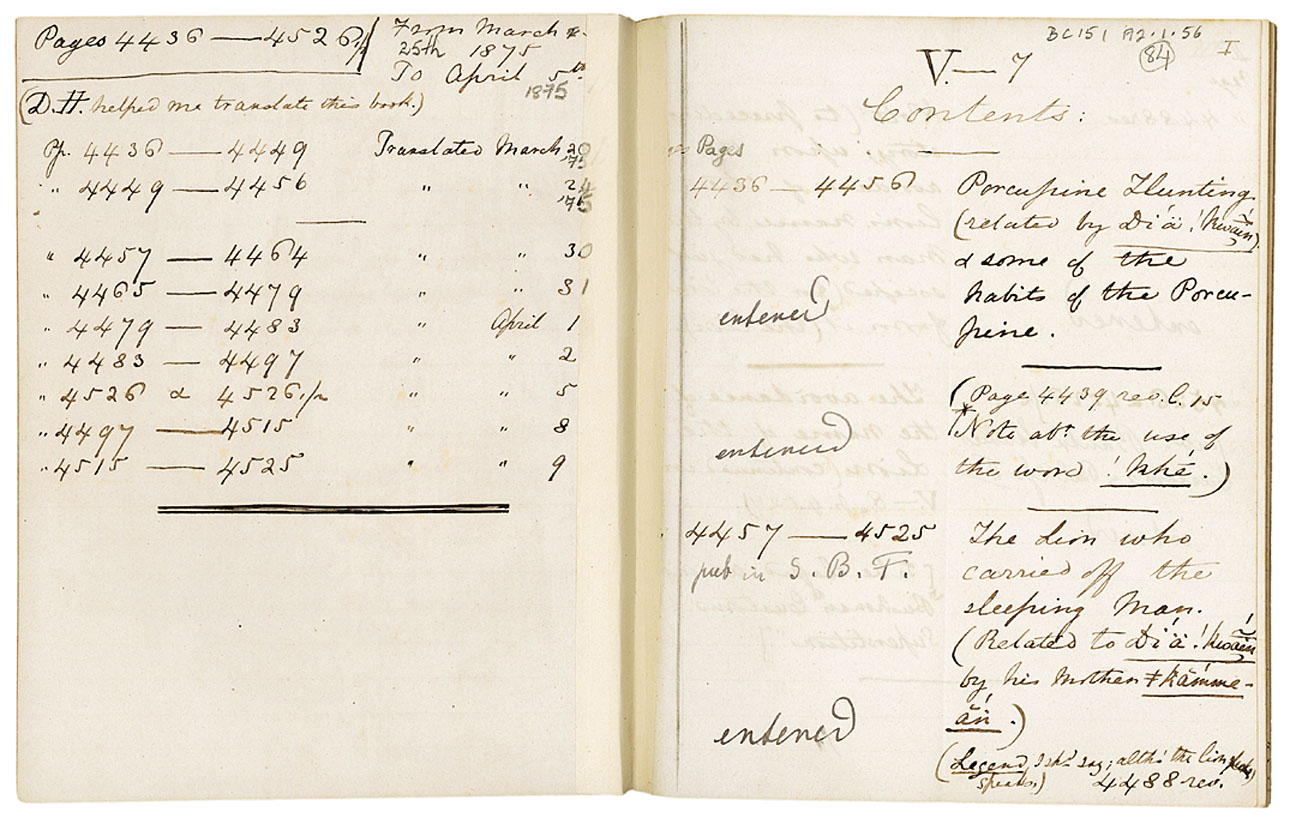 Pages 4436 — 4526½
From March
25th 1875
To April 5th
1875
(D.H. helped me translate this book.)
Pp. 4436 — 4449 Translated March 20
'75
" 4449 — 4456 " " 24
'75
" 4457 — 4464 " " 30
" 4465 — 4479 " " 31
" 4479 — 4483 " April 1
" 4483 — 4497 " " 2
" 4526 & 4526½ " " 5
" 4497 — 4515 " " 8
" 4515 — 4525 " " 9
BC151 A2.1.56
84
I
V. — 7
Contents:
Pages
4436 — 4456
Porcupine Hunting
(related by Díä!kwãin)
& some of the
habits of the Porcu-
pine.
entered
(Page 4439 rev. l. 15
Note abt. the use of
the word !khé.)
entered
4457 — 4525
pub in S. B. F.
The Lion who
carried off the
sleeping Man.
(Related to Díä!kwãin
by his Mother ǂkámme-
ăń.)
entered
(Legend, I shd. say; altho' the lion
speaks.) 4488 rev.